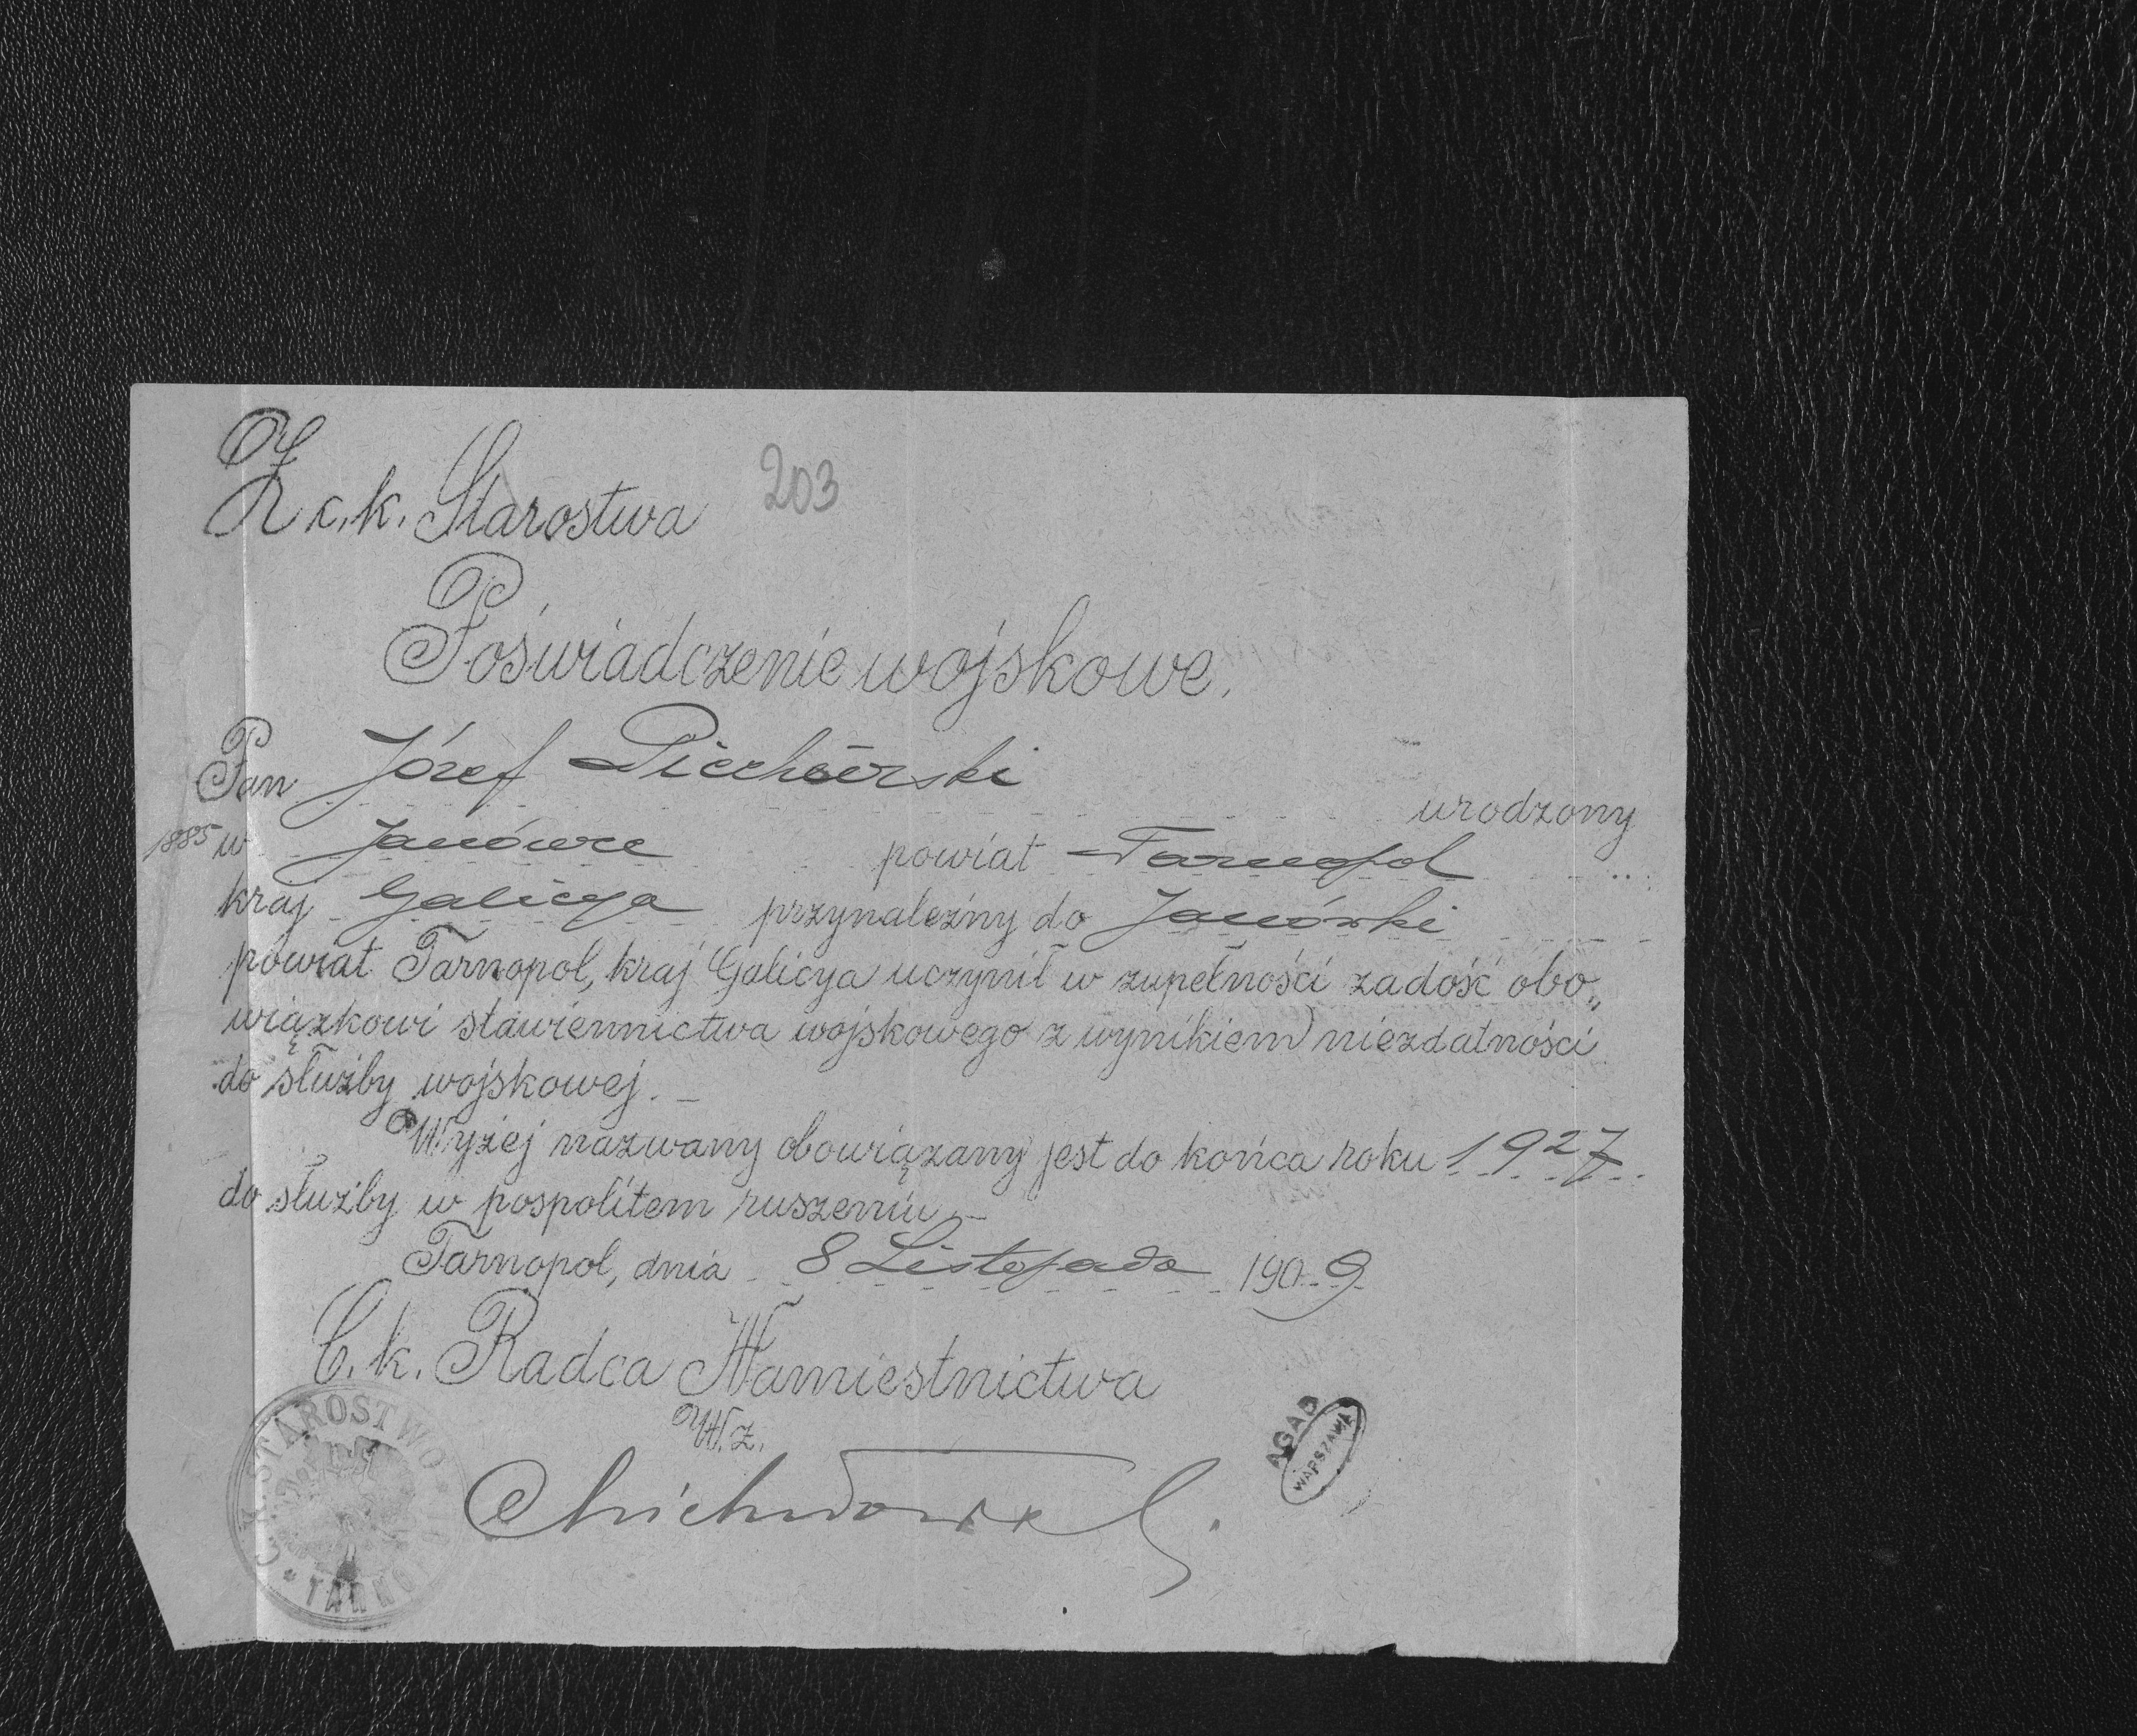 203
Z c. k. Starostwa
Poświadczenie wojskowe.
Pan Józef Piechórski urodzony
1885 w Janówce powiat Tarnopol
kraj Galicya przynależny do Janówki
powiat Tarnopol, kraj Galicya uczynił w zupełności zadość obo„
wiązkowi stawiennictwa wojskowego z wynikiem niezdatności
do służby wojskowej. –
Wyżej nazwany obowiązany jest do końca roku 1927
do służby w pospolitem ruszeniu. –
Tarnopol, dnia 8 Listopada 1909
C. k. Radca Namiestnictwa
W. z.
C. K. STAROSTWO
TARNOPOL
AGAD
WARSZAWA